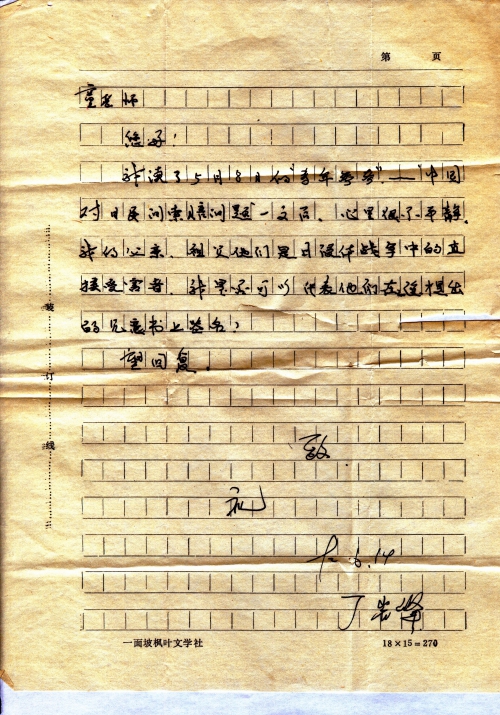 第 页
童老师
您好!
我读了5月8日的“青年参考”——“中国
对日民间索赔问题”一文后、心里很不平静。
我的父亲、祖父他们是日侵华战争中的直
接受害者、我是否可以代表他们在这提出
的兄意书上签名?
望回复。
致
礼
6.14
丁
装
订
线
一面坡枫叶文学社
18×15=270